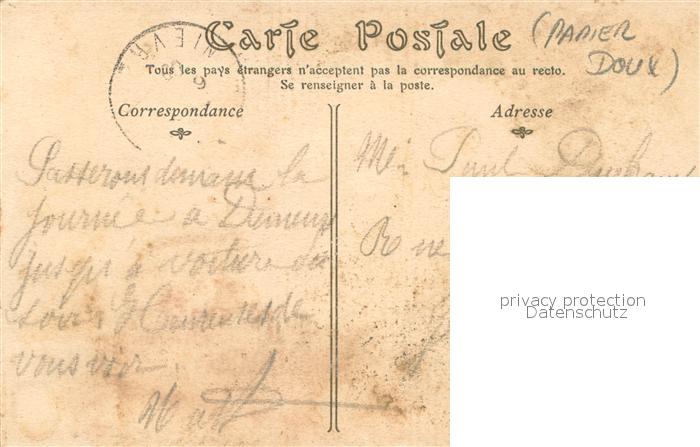 Carte Postale
(PAPIER DOUX)
NIEVRE
Tous les pays étrangers n'acceptent pas la correspondance au recto.
Se renseigner à la poste.
Correspondance
Adresse
Passerons demain la
journée a
jusqu'à voiture du
soir. Heureuses de
vous voir.
Paul
Rue
privacy protection
Datenschutz